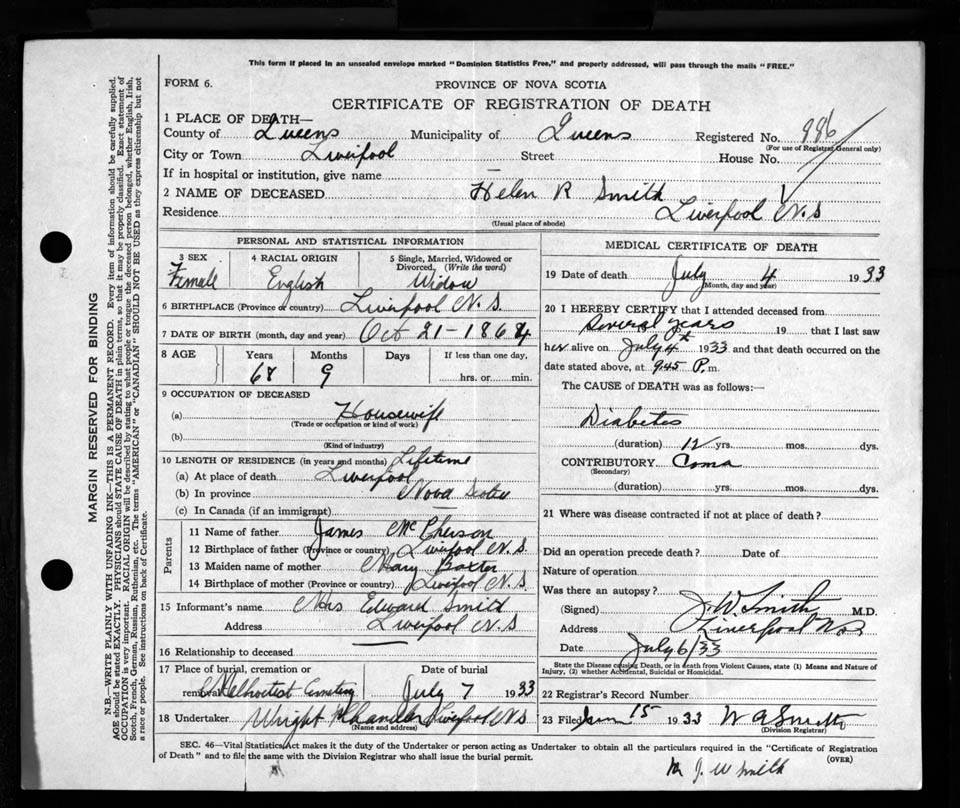 This form if placed in an unsealed envelope marked "Dominion Statistics Free," and properly addressed, will pass through the mails "FREE."
FORM 6.
PROVINCE OF NOVA SCOTIA
CERTIFICATE OF REGISTRATION OF DEATH
1 PLACE OF DEATH—
County of Queens Municipality of Queens Registered No. 986
(For use of Registrar General only)
City or Town Liverpool Street House No.
If in hospital or institution, give name —
2 NAME OF DECEASED Helen R Smith
Residence Liverpool N.S
(Usual place of abode)
PERSONAL AND STATISTICAL INFORMATION
3 SEX Female
4 RACIAL ORIGIN English
5 Single, Married, Widowed or Divorced. (Write the word) Widow
6 BIRTHPLACE (Province or country) Liverpool N.S.
7 DATE OF BIRTH (month, day and year) Oct 21-1864
8 AGE Years Months Days If less than one day,
68 9 hrs. or min.
9 OCCUPATION OF DECEASED
(a) Housewife
(Trade or occupation or kind of work)
(b)
(Kind of industry)
10 LENGTH OF RESIDENCE (in years and months) Lifetime
(a) At place of death Liverpool
(b) In province Nova Scotia
(c) In Canada (if an immigrant) —
Parents
11 Name of father James McPherson
12 Birthplace of father (Province or country) Liverpool N.S.
13 Maiden name of mother Mary Baxter
14 Birthplace of mother (Province or country) Liverpool N.S
15 Informant's name Mrs Edward Smith
Address Liverpool N.S
16 Relationship to deceased —
17 Place of burial, cremation or removal Date of burial
Methodist Cemetery July 7 1933
18 Undertaker Wright Liverpool N.S
(Name and address)
MEDICAL CERTIFICATE OF DEATH
19 Date of death July 4 1933
(Month, day and year)
20 I HEREBY CERTIFY that I attended deceased from
Several years 19 that I last saw
her alive on July 4th 1933 and that death occurred on the
date stated above, at 9.45 P.m.
The CAUSE of DEATH was as follows:—
Diabetes
(duration) 12 yrs. mos. dys.
CONTRIBUTORY Coma
(Secondary)
(duration) yrs. mos. dys.
21 Where was disease contracted if not at place of death?
Did an operation precede death? Date of
Nature of operation
Was there an autopsy?
(Signed) J. W. Smith M.D.
Address Liverpool N.S
Date July 6/33
State the Disease causing Death, or in death from Violent Causes, state (1) Means and Nature of Injury, (2) whether Accidental, Suicidal or Homicidal.
22 Registrar's Record Number
23 Filed 15 1933 W A Smith
(Division Registrar)
SEC. 46—Vital Statistics Act makes it the duty of the Undertaker or person acting as Undertaker to obtain all the particulars required in the "Certificate of Registration
of Death" and to file the same with the Division Registrar who shall issue the burial permit. (OVER)
J. W Smith
MARGIN RESERVED FOR BINDING
N.B.—WRITE PLAINLY WITH UNFADING INK—THIS IS A PERMANENT RECORD. Every item of information should be carefully supplied.
AGE should be stated EXACTLY. PHYSICIANS should STATE CAUSE OF DEATH in plain terms, so that it may be properly classified. Exact statement of
OCCUPATION is very important. RACIAL ORIGIN will be described by stating to what people or tongue the deceased person belonged, whether English, Irish,
Scotch, French, German, Russian, Ruthenian, etc. The terms "AMERICAN" or "CANADIAN" SHOULD NOT BE USED as they express citizenship but not
a race or people. See instructions on back of Certificate.